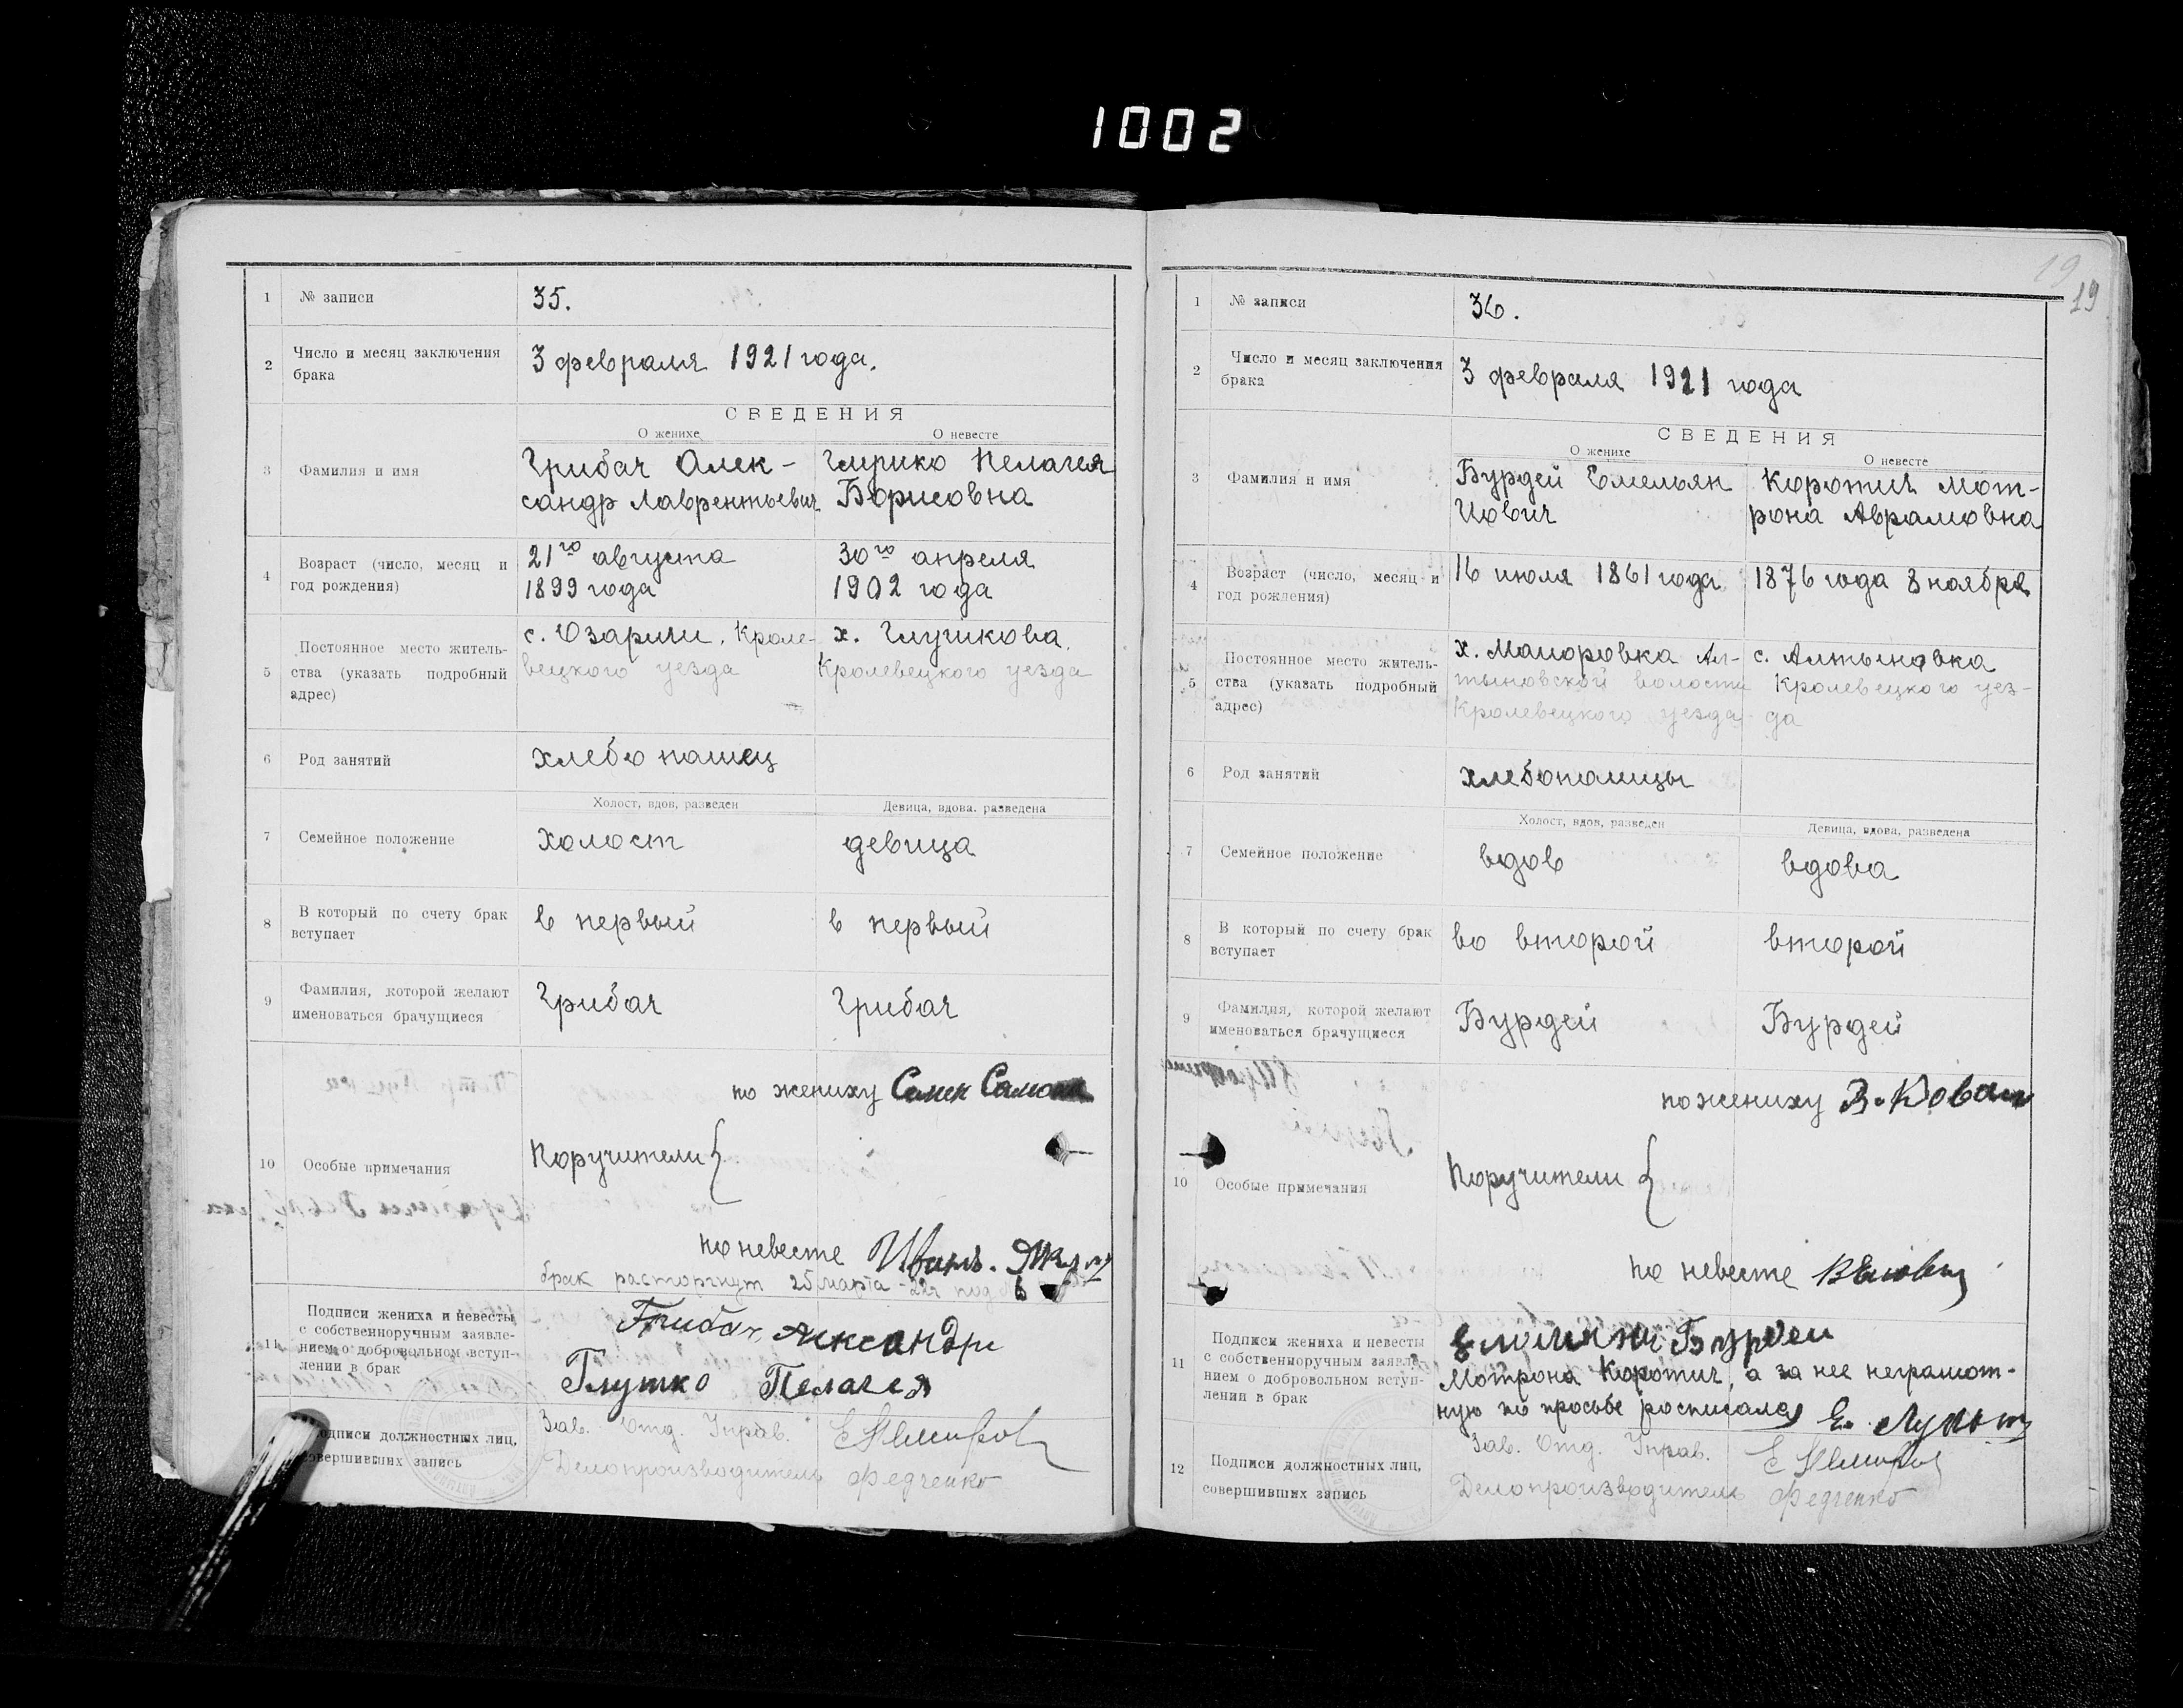 1002
1 № записи 35.
2 Число и месяц заключения
брака
3 февраля 1921 года.
СВЕДЕНИЯ
О женихе О невесте
3 Фамилия и имя
Грибач Алек-
сандр Лаврентьевич
Глушко Пелагея
Борисовна
4 Возраст (число, месяц и
год рождения)
21го августа
1899 года
30го апреля
1902 года
5 Постоянное место житель-
ства (указать подробный
адрес)
с. Озаричи, Кроле-
вецкого уезда
х. Глушкова,
Кролевецкого уезда
6 Род занятий хлебопашец
Холост, вдов, разведен Девица, вдова. разведена
7 Семейное положение холост девица
8 В который по счету брак
вступает
в первый в первый
9 Фамилия, которой желают
именоваться брачущиеся
Грибач Грибач
10 Особые примечания
по жениху Семен
Поручители {
по невесте Иванъ.
брак расторгнут 25 марта -22г под
11 Подписи жениха и невесты
с собственноручным заявле-
нием о добровольном вступ-
лении в брак
Грибач
Глушко Пелагея
Подписи должностных лиц,
совершивших запись
Зав. Отд. Управ.
Делопроизводитель Федченко
19
19
1 № записи 36.
2 Число и месяц заключения
брака
3 февраля 1921 года
СВЕДЕНИЯ
О женихе О невесте
3 Фамилия и имя
Бурдей Емельян
Иович
Коротич Мот-
рона Аврамовна
4 Возраст (число, месяц и
год рождения)
16 июля 1861 года
1876 года 8 ноября
5 Постоянное место житель-
ства (указать подробный
адрес)
х. Маиоровка Ал-
тыновской волости
Кролевецкого уезда
с. Алтыновка
Кролевецкого уез-
да
6 Род занятий хлебопашцы
Холост, вдов, разведен Девица, вдова, разведена
7 Семейное положение вдов вдова
8 В который по счету брак
вступает
во второй второй
9 Фамилия, которой желают
именоваться брачущиеся
Бурдей Бурдей
10 Особые примечания
по жениху
Поручители {
по невесте
11 Подписи жениха и невесты
с собственноручным заявле-
нием о добровольном вступ-
лении в брак
Бурдеи
Мотрона Коротич, а за нее неграмот-
ную по просьбе росписался Е.
12 Подписи должностных лиц,
совершивших запись
Зав. Отд. Управ.
Делопроизводитель Федченко